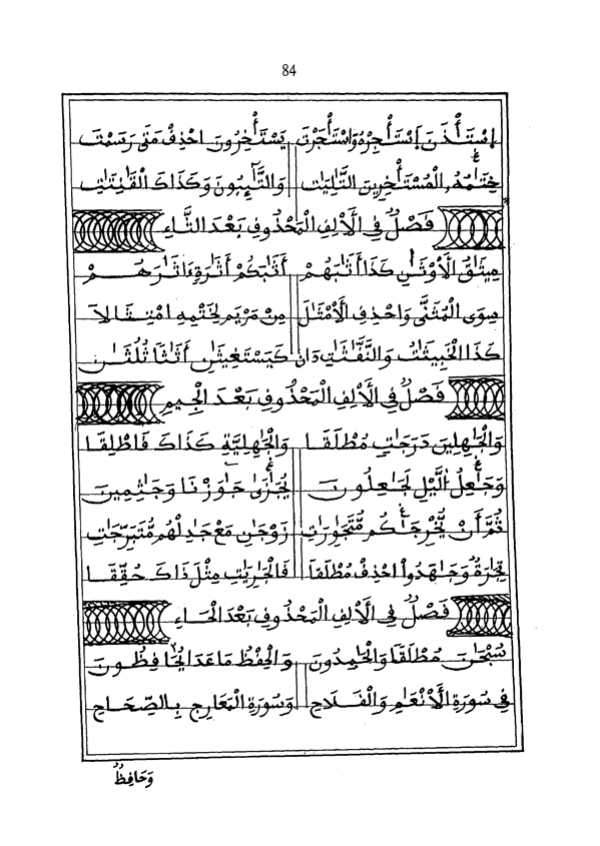 84
اِسْتَأْذَنَ اِسْتَأْجِرْهُ وَاسْتَأْجَرْتَ يَسْتَأْخِرُونَ احْذِفْ مَتَى رَسَمْتَ
خِتَٰمُهُۥ الْمُسْتَأْخِرِينَ التَّٰلِيَٰتِ وَالتَّٰٓئِبُونَ وَكَذَاكَ الْقَٰنِتَٰتِ
فَصْلٌ فِي الْأَلِفِ الْمَحْذُوفِ بَعْدَ الثَّاءِ
مِيثَٰقَ الْأَوْثَٰنِ كَذَا أَثَٰبَهُمْ أَثَٰبَكُمْ أَثَٰرَةٍ ءَاثَٰرَهُمْ
سِوَى الْمُثَنَّى وَاحْذِفِ الْأَمْثَٰلَ مِنْ مَرْيَمٍ لِخَتْمِهِ امْتِثَالَا
كَذَا الْخَبِيثَٰتُ وَالنَّفَّٰثَٰتِ دَانِ كَيَسْتَغِيثَٰنِ أَثَٰثًا ثُلُثَٰنِ
فَصْلٌ فِي الْأَلِفِ الْمَحْذُوفِ بَعْدَ الْجِيمِ
وَالْجَٰهِلِينَ دَرَجَٰتٍ مُطْلَقَا وَالْجَٰهِلِيَّةِ كَذَاكَ فَاطْلِقَا
وَجَٰعِلُ الَّيْلِ لَجَٰعِلُونَ يُجَٰزَىٰ جَٰوَزْنَا وَجَٰثِمِينَ
ثُمَّ أَنْ يُّخْرِجَٰكُم مُّتَجَٰوِرَٰتٌ زَوْجَٰنِ مَعْ جَٰدِلْهُم مُّتَبَرِّجَٰتٍ
تِجَٰرَةٌ وَجَٰهَدُواْ احْذِفْ مُطْلَقَا فَالْجَٰرِيَٰتِ مِثْلَ ذَاكَ حُقِّقَا
فَصْلٌ فِي الْأَلِفِ الْمَحْذُوفِ بَعْدَ الْحَاءِ
سُبْحَٰنَ مُطْلَقًا وَالْحَٰمِدُونَ وَالْحِفْظُ مَا عَدَا الْحَافِظُونَ
فِي سُورَةِ الْأَنْعَٰمِ وَالْفَلَاحِ وَسُورَةِ الْمَعَارِجِ بِالصِّحَاحِ
وَحَافِظٌ